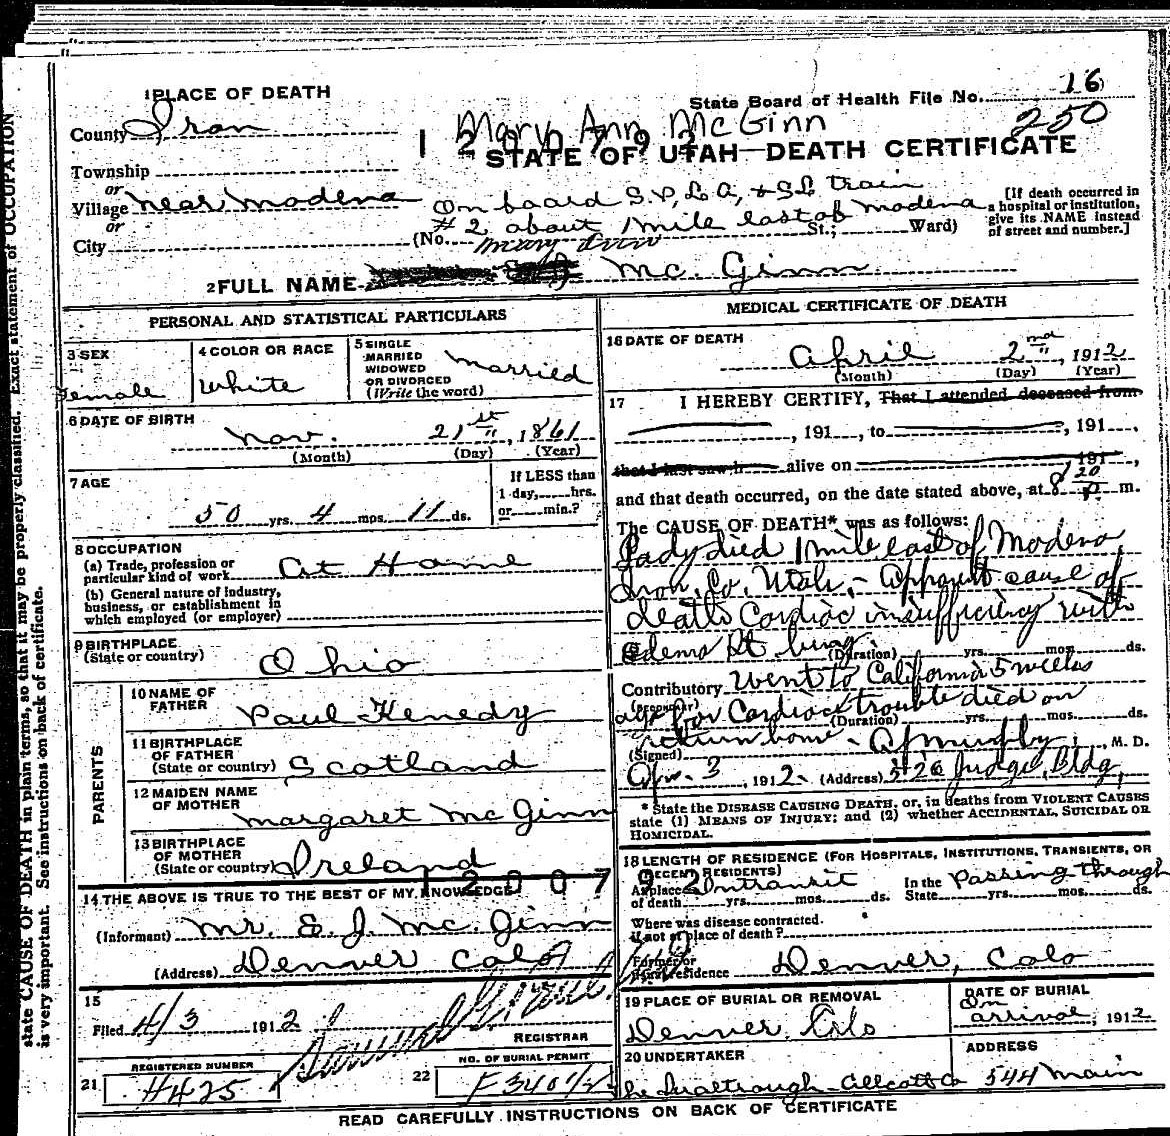 1 PLACE OF DEATH
State Board of Health File No. 16
250
County Iron
Mary Ann McGinn
STATE OF UTAH—DEATH CERTIFICATE
Township
or
Village near Modena
or
City
On board S.P, L.A, & S.L train
# 2 about 1 mile east of Modena
(No. St.; Ward)
[If death occurred in
a hospital or institution,
give its NAME instead
of street and number.]
Mary Ann
2 FULL NAME Mc. Ginn
PERSONAL AND STATISTICAL PARTICULARS
3 SEX
Female
4 COLOR OR RACE
White
5 SINGLE
MARRIED
WIDOWED
OR DIVORCED
(Write the word)
Married
6 DATE OF BIRTH
Nov. 21st, 1861
(Month) (Day) (Year)
7 AGE
50 yrs. 4 mos. 11 ds.
If LESS than
1 day, hrs.
or min.?
8 OCCUPATION
(a) Trade, profession or
particular kind of work At Home
(b) General nature of industry,
business, or establishment in
which employed (or employer)
9 BIRTHPLACE
(State or country)
Ohio
PARENTS
10 NAME OF
FATHER
Paul Kenedy
11 BIRTHPLACE
OF FATHER
(State or country) Scotland
12 MAIDEN NAME
OF MOTHER
Margaret Mc Ginn
13 BIRTHPLACE
OF MOTHER
(State or country) Ireland
14 THE ABOVE IS TRUE TO THE BEST OF MY KNOWLEDGE
(Informant) Mr. E. J. Mc Ginn
(Address) Denver Colo
15
Filed 4/3 1912
REGISTRAR
REGISTERED NUMBER
21 4425
NO. OF BURIAL PERMIT
22
MEDICAL CERTIFICATE OF DEATH
16 DATE OF DEATH
April 2nd, 1912
(Month) (Day) (Year)
17 I HEREBY CERTIFY, That I attended deceased from
, 191 , to , 191 ,
that I last saw h alive on 191 ,
and that death occurred, on the date stated above, at 8 20 P. m.
The CAUSE OF DEATH* was as follows:
Lady died 1 mile east of Modena
Iron, Co. Utah, - Apparent cause of
death Cardiac insufficiency with
edema Rt lung
(Duration) yrs. mos. ds.
Contributory Went to California 5 weeks
ago for Cardiac trouble died on
(Duration) yrs. mos. ds.
return home -
(Signed) Murphy, M. D.
Apr. 3, 1912 (Address) 326 Judge Bldg,
* State the DISEASE CAUSING DEATH, or, in deaths from VIOLENT CAUSES
state (1) MEANS OF INJURY; and (2) whether ACCIDENTAL, SUICIDAL OR
HOMICIDAL.
18 LENGTH OF RESIDENCE (FOR HOSPITALS, INSTITUTIONS, TRANSIENTS, OR
RECENT RESIDENTS)
At place Intransit In the Passing through
of death yrs. mos. ds. State yrs. mos. ds.
Where was disease contracted.
if not at place of death?
Former or
usual residence Denver, Colo
19 PLACE OF BURIAL OR REMOVAL
Denver, Colo
DATE OF BURIAL
On
arrival, 1912
20 UNDERTAKER
ADDRESS
544 Main
READ CAREFULLY INSTRUCTIONS ON BACK OF CERTIFICATE
state CAUSE OF DEATH in plain terms, so that it may be properly classified. Exact statement of OCCUPATION
is very important. See instructions on back of certificate.